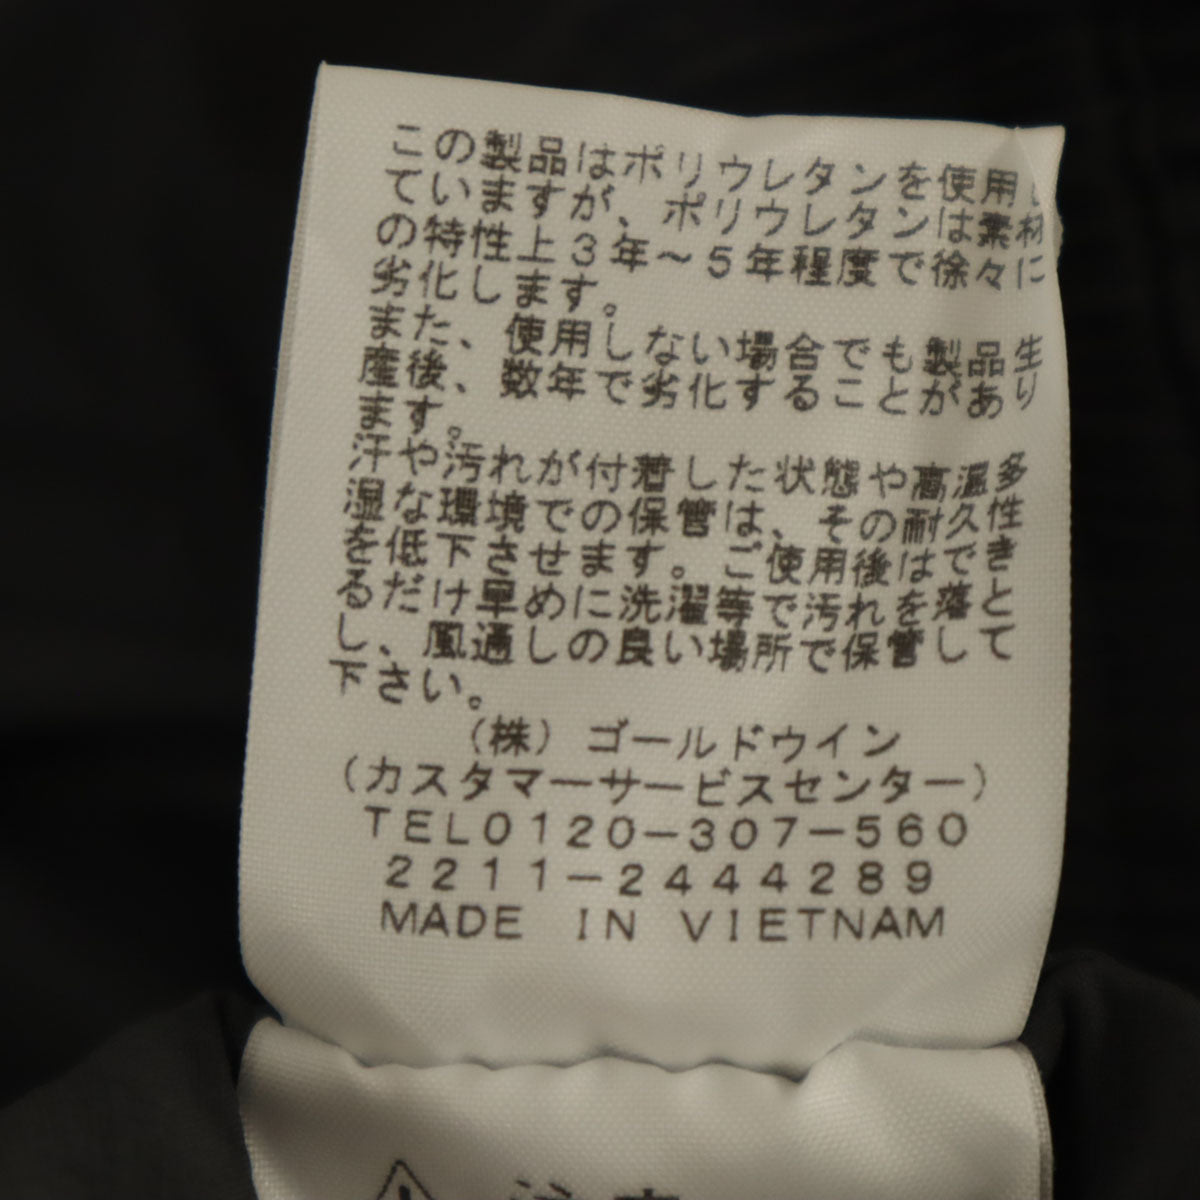 この製品はポリウレタンを使用し
ていますが、ポリウレタンは素材
の特性上3年～5年程度で徐々に
劣化します。
また、使用しない場合でも製品生
産後、数年で劣化することがあり
ます。
汗や汚れが付着した状態や高温多
湿な環境での保管は、その耐久性
を低下させます。ご使用後はでき
るだけ早めに洗濯等で汚れを落と
し、風通しの良い場所で保管して
下さい。
(株)ゴールドウイン
(カスタマーサービスセンター)
TEL0120-307-560
2211-2444289
MADE IN VIETNAM